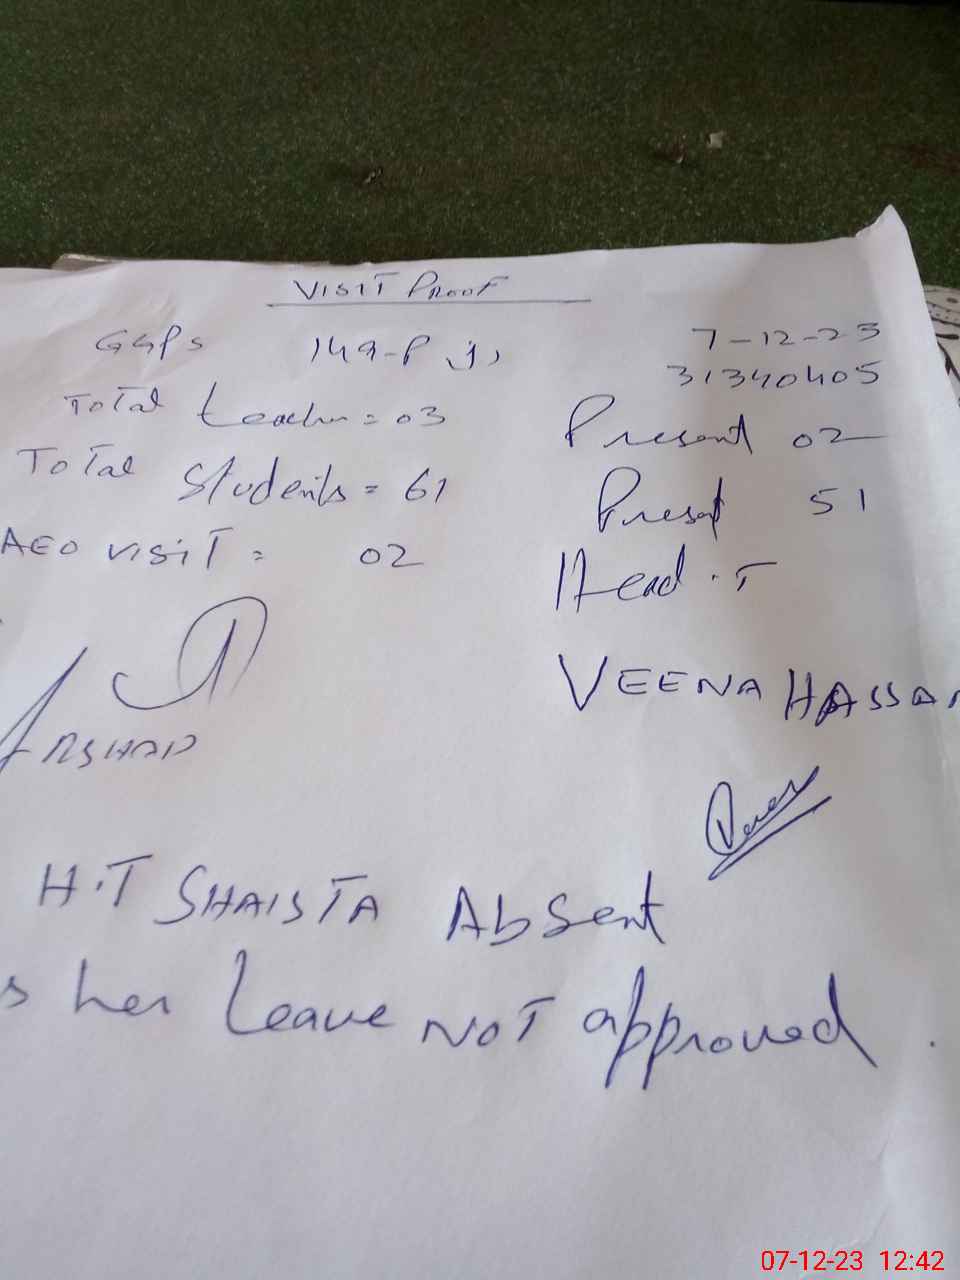 VISIT PROOF
GGPS 149-P 7-12-23
31340405
Total teacher = 03 Present 02
Total Students = 61 Present 51
AEO visit = 02 Head.T
VEENA HASSAN
ARSHAD
H.T SHAISTA Absent
s her Leave NOT approved.
07-12-23 12:42